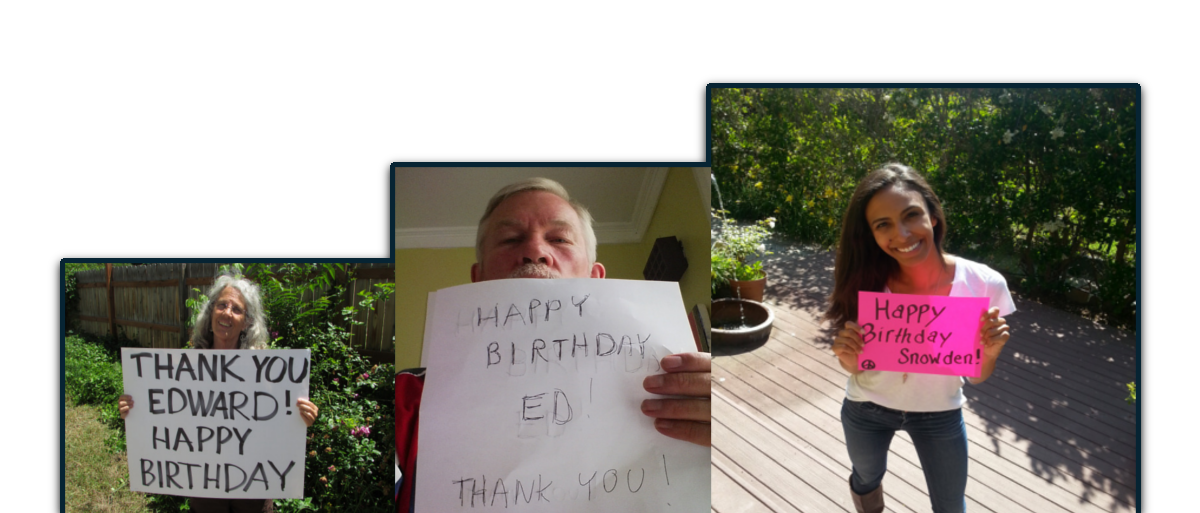 THANK YOU
EDWARD!
HAPPY
BIRTHDAY
HAPPY
BIRTHDAY
ED!
THANK YOU!
Happy
Birthday
Snowden!